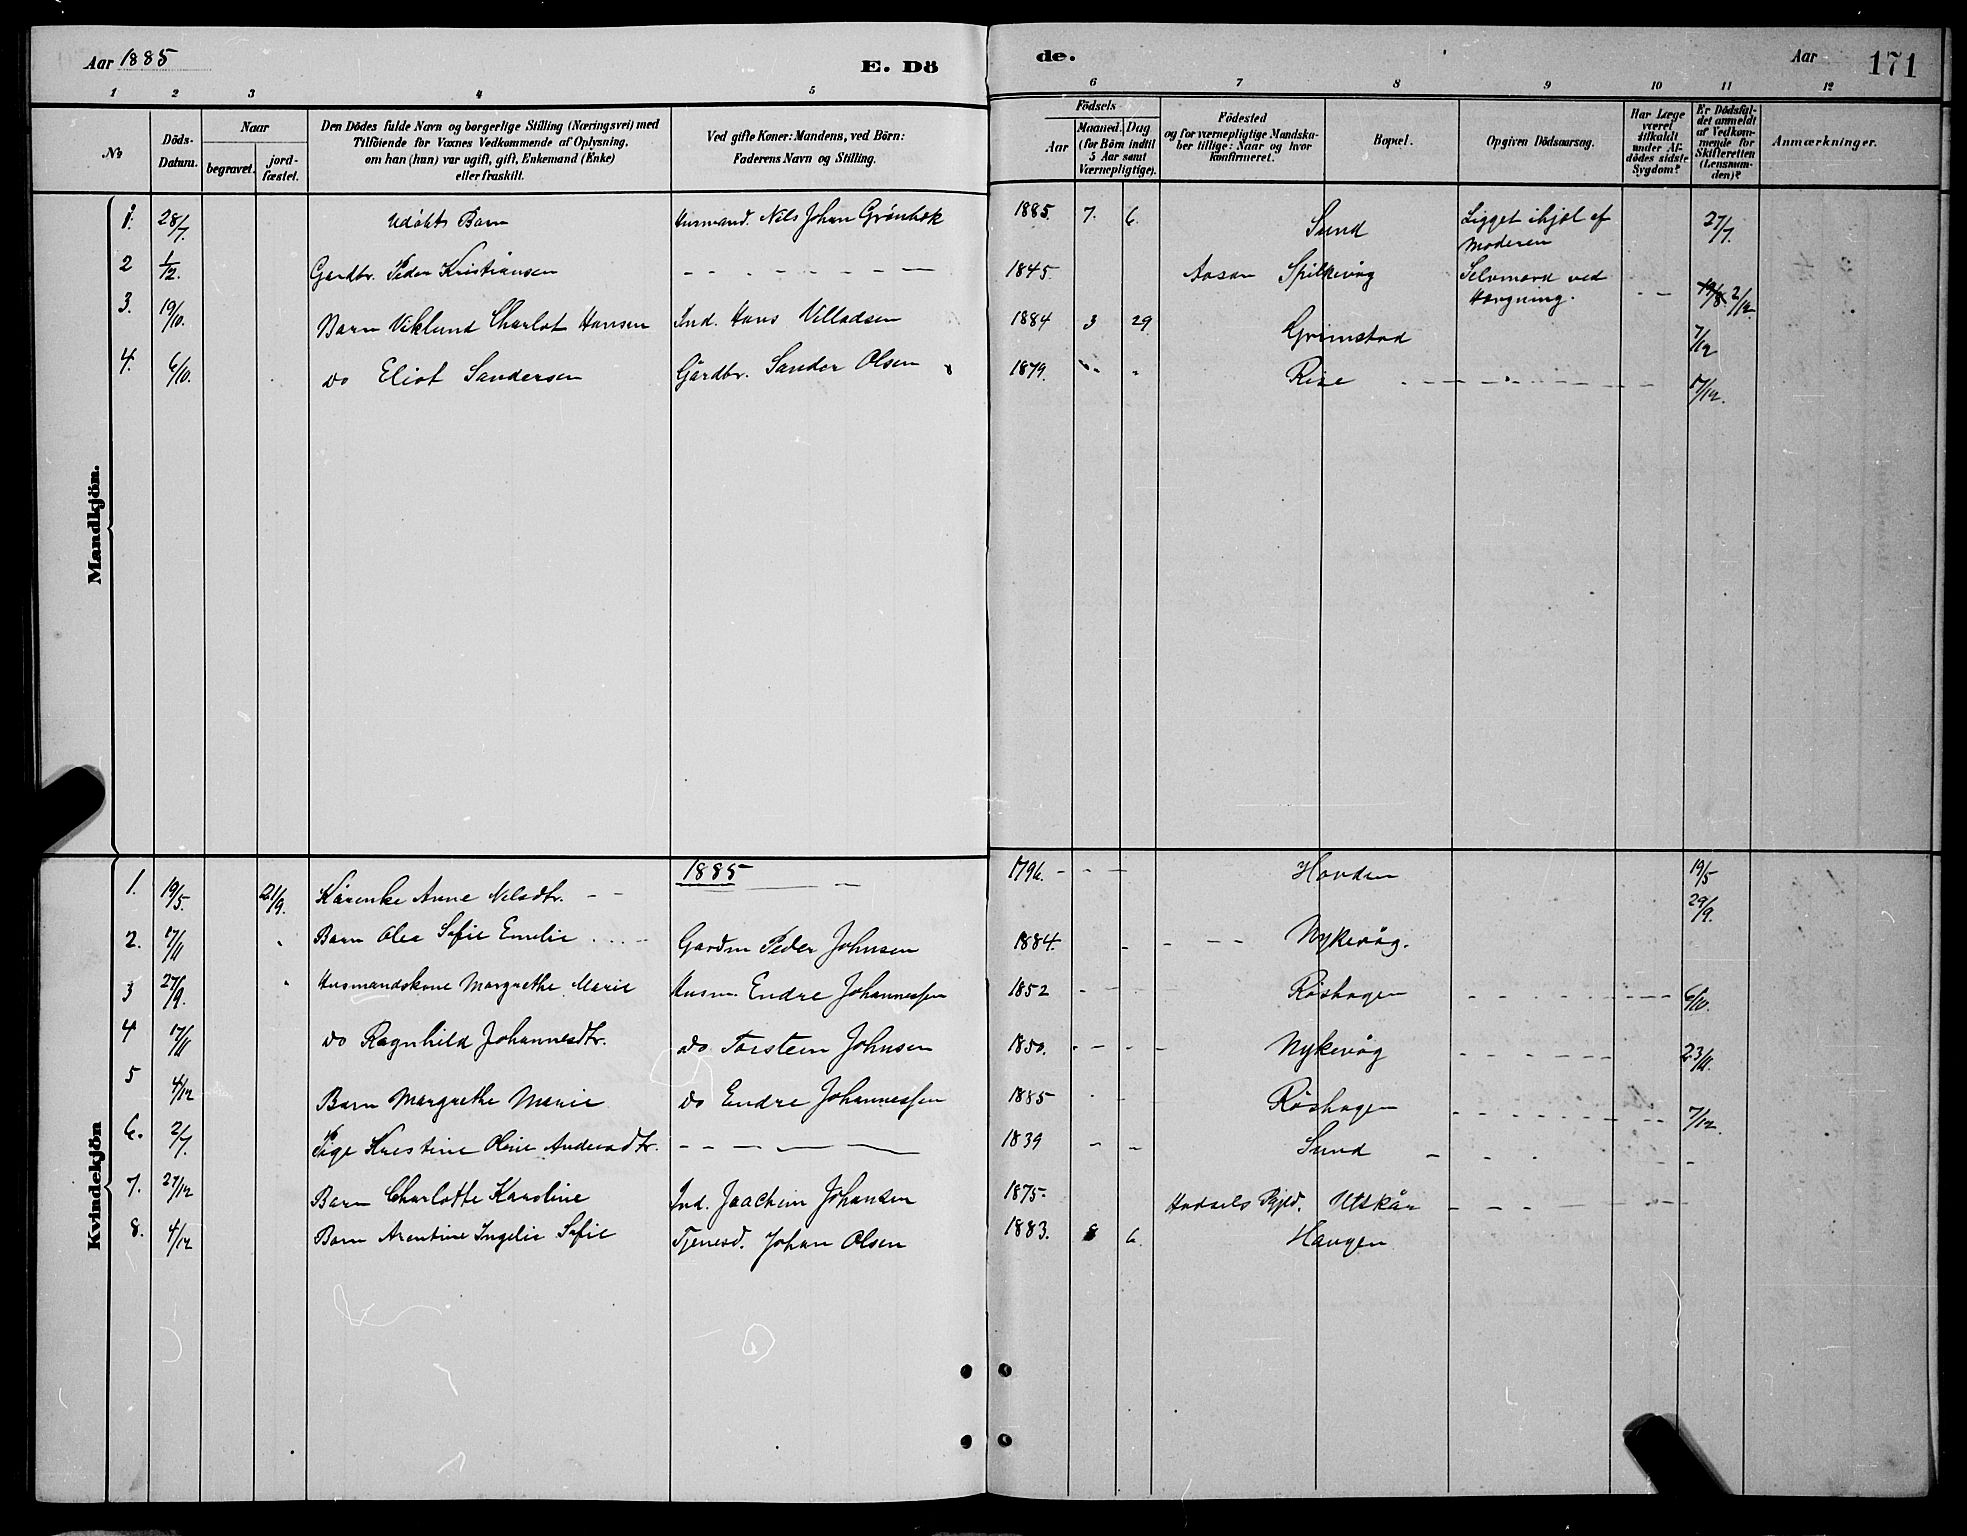 Aar 1885 E. Dö de. Aar 171
1 2 3 4 5 6 7 8 9 10 11 12
No
Döds-Datum.
Naar
begravet. jord-fæstet.
Den Dödes fulde Navn og borgerlige Stilling (Næringsvei) med
Tilföiende for Voxnes Vedkommende af Oplysning,
om han (hun) var ugift, gift, Enkemand (Enke)
eller fraskilt.
Ved gifte Koner: Mandens, ved Börn:
Faderens Navn og Stilling.
Födsels-
Aar
Maaned. Dag
(for Börn indtil
5 Aar samt
Værnepligtige).
Födested
og for værnepligtige Mandska-
ber tillige: Naar og hvor
konfirmeret.
Bopæl.
Opgiven Dödsaarsag.
Har Læge
været
tilkaldt
under Af-
dödes sidste
Sygdom?
Er Dödsfal-
det anmeldt
af Vedkom-
mende for
Skifteretten
(Lensman-
den)?
Anmærkninger.
Mandkjön.
1. 28/7. Udöbt Barn Husmand. Nils Johan Grönbæk 1885. 7. 6. Sund Ligget ihjel af Moderen 27/7.
2 1/12. Gardbr. Peder Kristiansen 1845. Spilkevåg Selvmord ved Hængning. 19/8 2/12.
3. 19/10. Barn Viklund Charlot Hansen Ind. Hans Villadsen 1884 3 29 Grimstad 7/12
4. 6/10. do Eliot Sandersen Gårdbr. Sander Olsen 1879. Rise 17/12.
Kvindekjön
1885
1. 19/5. 21/9. Kårenke Anne Nilsdtr. 1796. Hovden 19/5 29/9.
2. 17/11 Barn Olea Sofie Emelie Gardm Peder Johnsen 1884. Nykevåg.
3 27/9. Husmandskone Margrethe Marie Husm. Endre Johannessen 1852 Röshagen 6/10.
4 17/11 do Ragnhild Johannesdtr. do Torstein Johnsen 1850. Nykevåg 23/11.
5 4/12 Barn Margrethe Marie do Endre Johannessen 1885 Röshagen 7/12.
6. 2/7. Pige Kristine Oline Andersdtr. 1839 Sund
7. 27/12 Barn Charlotte Karoline Ind. Joachim Johansen 1875. Hadsels Pgjld. Utskår
8. 4/12 Barn Arentine Ingelie Sofie Tjenesd. Johan Olsen 1883. 8 6. Haugen